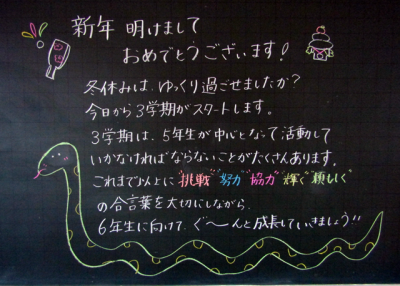 新年 明けまして
おめでとうございます！
冬休みは、ゆっくり過ごせましたか？
今日から3学期がスタートします。
3学期は、5年生が中心となって活動して
いかなければならないことがたくさんあります。
これまで以上に"挑戦""努力""協力""輝く""頼もしく"
の合言葉を大切にしながら、
6年生に向けて、ぐ〜んと成長していきましょう!!